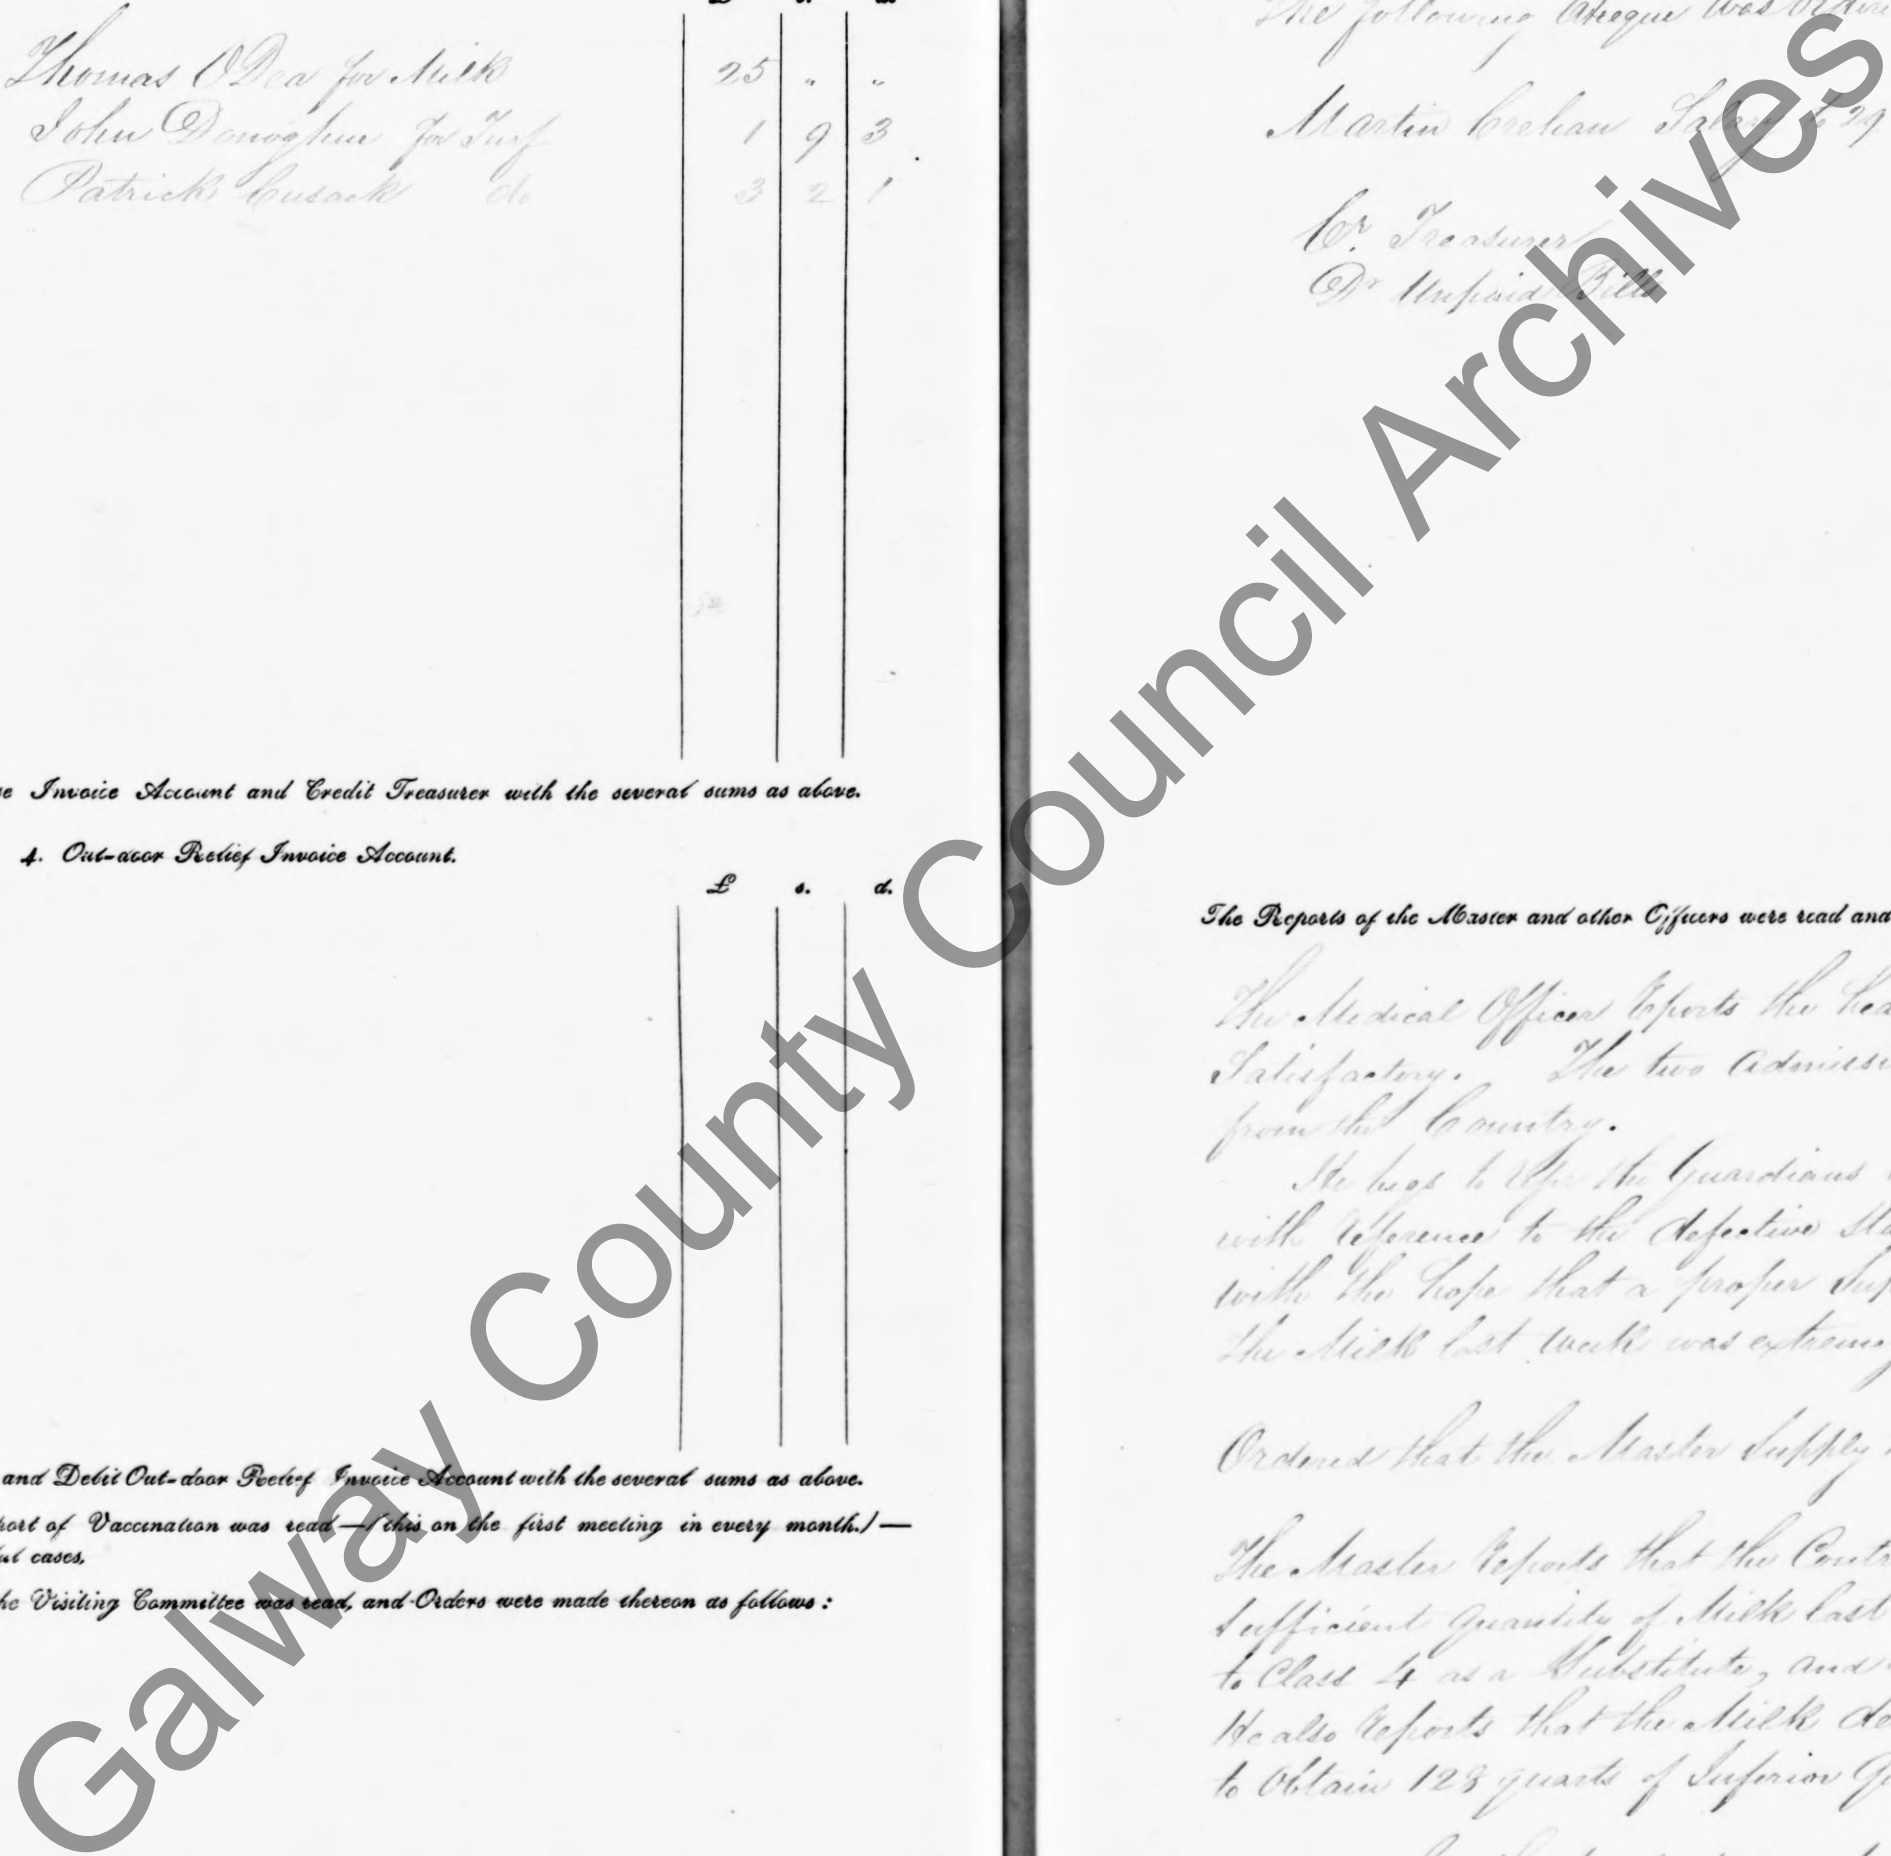 Thomas O'Dea for Milk 25 " "
John Donoghue for Turf 1 9 3
Patrick Cusack do 3 2 1
Invoice Account and Credit Treasurer with the several sums as above.
4. Out-door Relief Invoice Account.
£ s. d.
and Debit Out-door Relief Invoice Account with the several sums as above.
port of Vaccination was read—(this on the first meeting in every month.)—
cases.
he Visiting Committee was read, and Orders were made thereon as follows:
The following Cheque was
Martin Crehan Salary to 29
Cr. Treasurer
Dr Unpaid Bills
The Reports of the Master and other Officers were read and
The Medical Officer Reports the hea
Satisfactory. The two admiss
from the Country.
He begs to refer the Guardians
with reference to the defective sta
with the hope that a proper Sup
the Milk last week was extremely
Ordered that the Master Supply
The Master Reports that the Contr
Sufficient Quantity of Milk last
to Class 4 as a Substitute, and
He also Reports that the Milk de
to Obtain 128 quarts of Inferior Qu
Galway County Council Archives